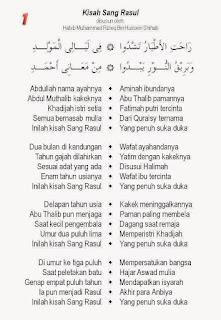 1
Kisah Sang Rasul
disusun oleh:
Habib Muhammad Rizieq Bin Hussein Shihab
رَاحَتِ الْأَطْيَارُ تَشْدُوا ✦ فِى لَيَالِى الْمَوْلِدِ
وَبَرِيْقُ النُّوْرِ يَبْدُوا ✦ مِنْ مَعَانِى أَحْمَدِ
Abdullah nama ayahnya ✦ Aminah ibundanya
Abdul Muthalib kakeknya ✦ Abu Thalib pamannya
Khadijah istri setia ✦ Fatimah putri tercinta
Semua bernasab mulia ✦ Dari Quraisy ternama
Inilah kisah Sang Rasul ✦ Yang penuh suka duka
Dua bulan di kandungan ✦ Wafat ayahandanya
Tahun gajah dilahirkan ✦ Yatim dengan kakeknya
Sesuai adat yang ada ✦ Disusui Halimah
Enam tahun usianya ✦ Wafat ibu tercinta
Inilah kisah Sang Rasul ✦ Yang penuh suka duka
Delapan tahun usia ✦ Kakek meninggalkannya
Abu Thalib pun menjaga ✦ Paman paling membela
Saat kecil pengembala ✦ Dagang saat remaja
Umur dua puluh lima ✦ Memperistri Khadijah
Inilah kisah Sang Rasul ✦ Yang penuh suka duka
Di umur ke tiga puluh ✦ Mempersatukan bangsa
Saat peletakan batu ✦ Hajar Aswad mulia
Genap empat puluh tahun ✦ Mendapatkan isyarah
Ia pun menjadi Rasul ✦ Akhir para Anbiya
Inilah kisah Sang Rasul ✦ Yang penuh suka duka